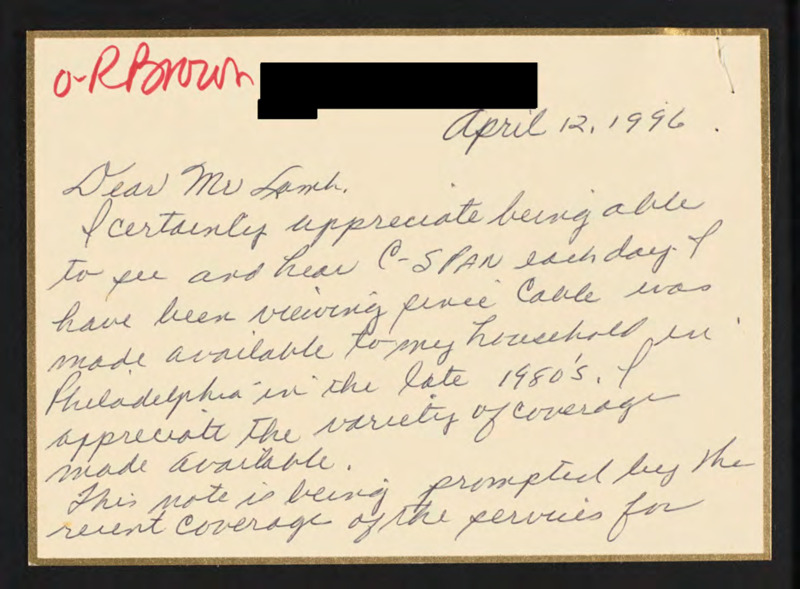 o-R Brown
April 12, 1996.
Dear Mr Lamb.
I certainly appreciate being able
to see and hear C-SPAN each day. I
have been viewing since Cable was
made available to my household in
Philadelphia in the late 1980's. I
appreciate the variety of coverage
made available.
This note is being prompted by the
recent coverage of the services for